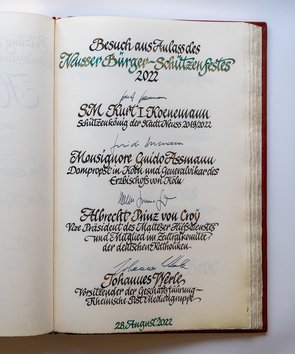 Besuch aus Anlass des
Neusser Bürger-Schützenfestes
2022
SM Kurt I. Koenemann
Schützenkönig der Stadt Neuss 2019/2022
Monsignore Guido Assmann
Dompropst in Köln und Generalvikar des
Erzbischofs von Köln
Albrecht Prinz von Croÿ
Vize Präsident des Malteser Hilfsdienstes
und Mitglied im Zentralkomitee
der deutschen Katholiken
Johannes Werle
Vorsitzender der Geschäftsführung
Rheinische Post Mediengruppe
28. August 2022